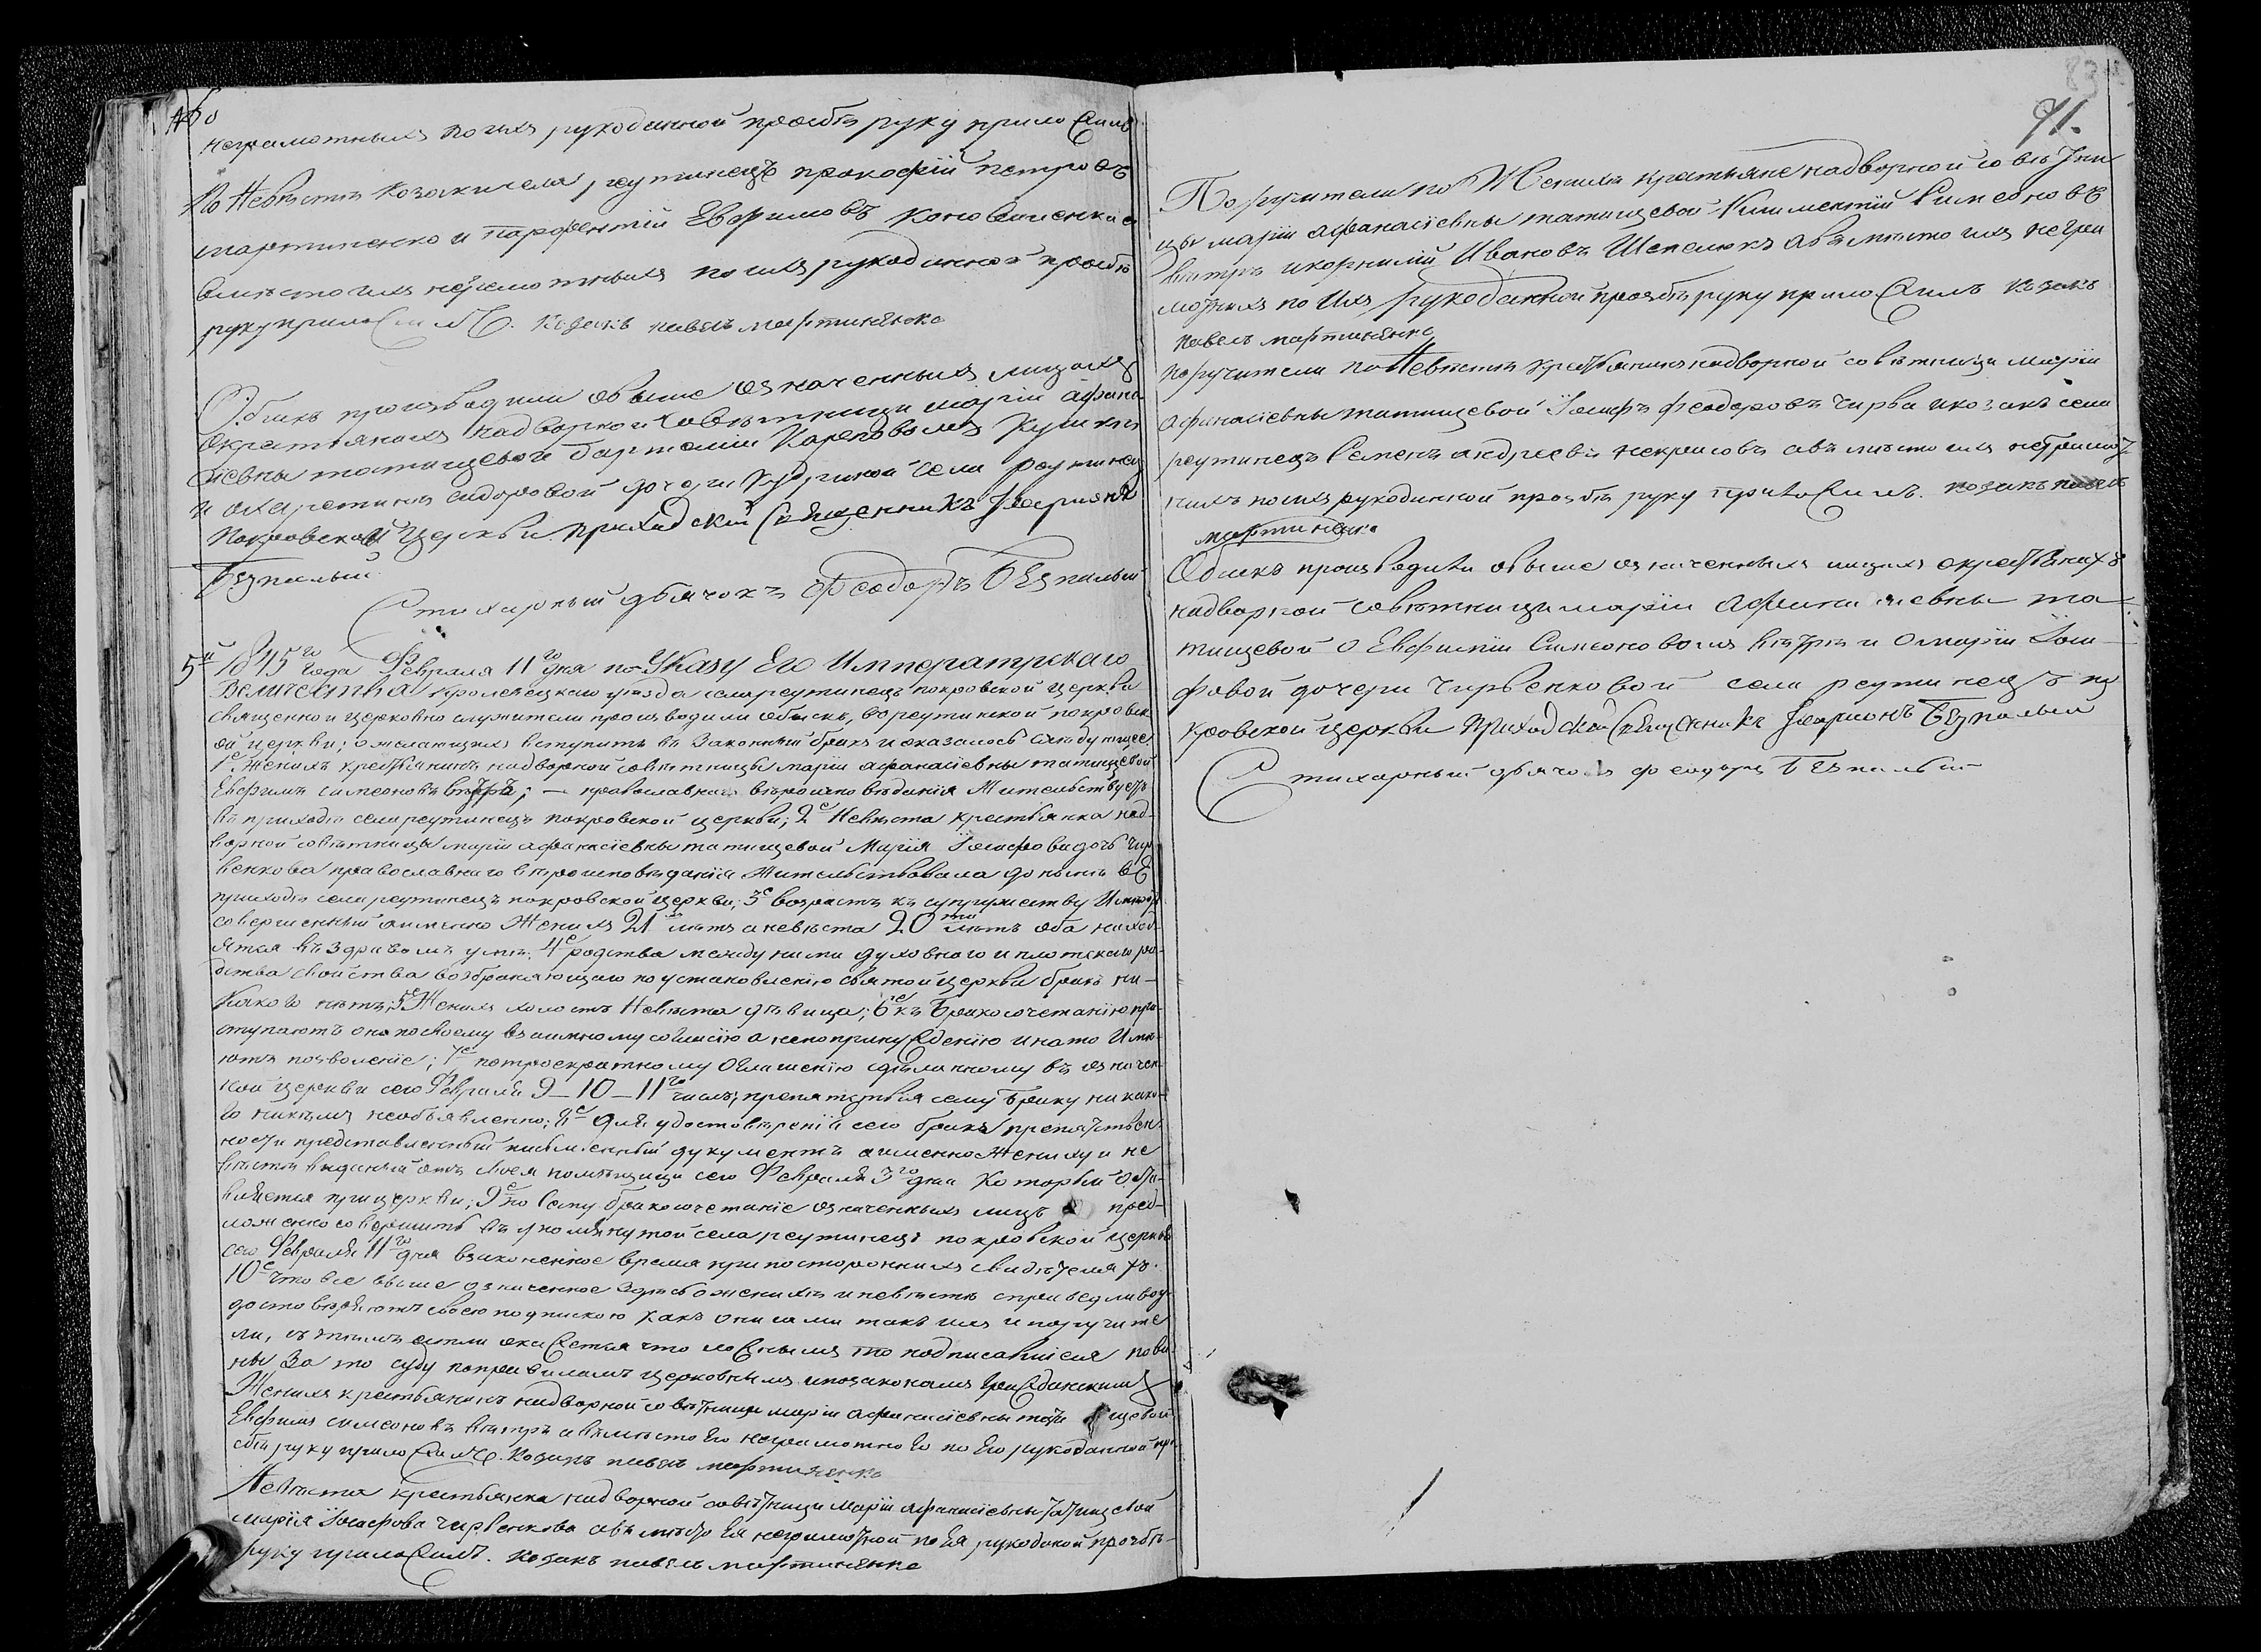 неграмотныхъ по ихъ рукоданной прозбѣ руку приложилъ
По Невѣстѣ козаки села реутинецъ прокофій петровъ
мартиненко и парфентій Евфимовъ коноваленко а
вмѣсто ихъ неграмотныхъ по ихъ рукоданной прозбѣ
руку приложилъ. козакъ павелъ мартиненко
Обыскъ производили обвыше означенныхъ лицахъ
окрестьянахъ надворной совѣтници маріи афана
сіевны татищевой
и охаретинѣ сидоровой дочери села реутинецъ
покровской церкви приходскій Священникъ Иларионъ
Безпалый
Стихарный дьячокъ Феодоръ Безпалый
5й 1845го года Февраля 11го дня по Указу Его Императорскаго
Величества кролевецкаго уѣзда села реутинецъ покровской церкви
священно и церковно служители производили обыскъ, вореутинской покровск
ой церкви; ожелающихъ вступить въ законный бракъ и оказалось слѣдующее
1е Женихъ крестьянинъ надворной совѣтницы маріи афанасіевны татищевой
Евфимъ симеоновъ вѣтръ; — православнаго вѣроисповѣданія Жительствуетъ
въ приходѣ села реутинецъ покровской церкви; 2е Невѣста крестьянка над-
ворной совѣтницы маріи афанасіевны татищевой Марія Іосифова дочь чир
венкова православнаго вѣроисповѣданія Жительствовала донынѣ въ
приходѣ села реутинецъ покровской церкви; 3е возрастъ къ супружеству Имѣютъ
совершенный аименно Женихъ 21 лѣтъ аневѣста 20ти лѣтъ оба находя
ятся въ здравомъ умѣ; 4е родства между ними духовнаго и плотскаго ро-
дства свойства возбраняющаго по установленію святой церкви бракъ ни-
какого нѣтъ; 5е Женихъ холостъ Невѣста дѣвица; 6е къ Бракосочетанію при-
ступаютъ они по своему взаимному согласію а непопринужденію и на то Имѣ-
ютъ позволеніе; 7е потроекратному Оглашенію сдѣланному въ означен
ной церкви сего Февраля 9–10–11го числъ, препятствія сему браку никако-
го никѣмъ необъявленно; 8е Для удостовѣренія сего брака препятствен-
ности представленный письменный документъ аименно Жениху и не
вѣстѣ выданный отъ своея помѣщици сего Февраля 3го дня Который оста-
вляется при церкви; 9е по Сему бракосочетаніе означенныхъ лицъ пред-
ложенно совершить въ упомянутой села реутинецъ покровской церкви
сего Февраля 11го дня взаконенное время при постороннихъ свидѣтеляхъ.
10е что все ввыше означенное здѣсь оженихѣ и невѣстѣ справедливо у-
достовѣряютъ своею подпискою какъ они сами такъ ихъ и поручите
ли, сътѣмъ если окажется что ложнымъ то подписавшіеся пови
ны за то суду поправиламъ церковнымъ и позаконамъ Гражданскимъ
Женихъ крестьянинъ надворной совѣтници маріи афанасіевны татищевой
Евфимъ симеоновъ вѣтръ авмѣсто Его неграмотного по Его рукоданной про-
збѣ руку приложилъ. Козакъ павелъ мартиненко
Невѣста крестьянка надворной совѣтници Маріи Афанасіевны татищевой
марія Іосифова чирвенкова авмѣсто Ея неграмотной по Ея рукоданой прозбѣ
руку приложилъ. козакъ павелъ мартиненко
91.
Поручители по Женихѣ крестьяне надворной совѣтни
цы маріи афанасіевны татищевой Климентій Симеоновъ
вѣтръ икорнилій Ивановъ Шепелюкъ авмѣсто ихъ неграм
мотныхъ по Ихъ Рукоданной прозбѣ руку приложилъ козакъ
павелъ мартиненко
поручители по Невѣстѣ крестьянинъ надворной совѣтници маріи
афанасіевны татищевой Іосифъ феодоровъ чирва икозакъ села
реутинецъ Семенъ андреевъ некрасовъ авмѣсто ихъ неграмот-
нихъ по ихъ рукоданной прозбѣ руку приложилъ. козакъ павелъ
мартиненко
Обыскъ производили обвыше означенныхъ лицахъ окрестьянахъ
надворной совѣтници маріи Афанасіевны та-
тищевой о Евфиміи Симеоновомъ вѣтрѣ и Омаріи Іоси-
фовой дочери чирвенковой села реутинецъ по
кровской церкви приходскій Священникъ Иларионъ Безпалый
Стихарный дьячокъ феодоръ Безпалый